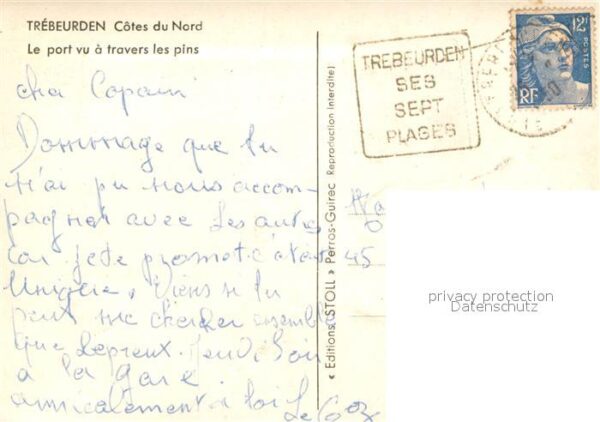 TRÉBEURDEN Côtes du Nord
Le port vu à travers les pins
cher Copain
Dommage que tu
n'ai pu nous accom-
pagner avec les autres
car je te promet c'etait
Unique. Viens si tu
peut me chercher ensemble
que Lepreux Jeudi Soir
à la gare
amicalement à toi
« Editions "STOLL" » Perros-Guirec Reproduction interdite)
TREBEURDEN
SES
SEPT
PLAGES
12F
POSTES
RF
45
privacy protection
Datenschutz